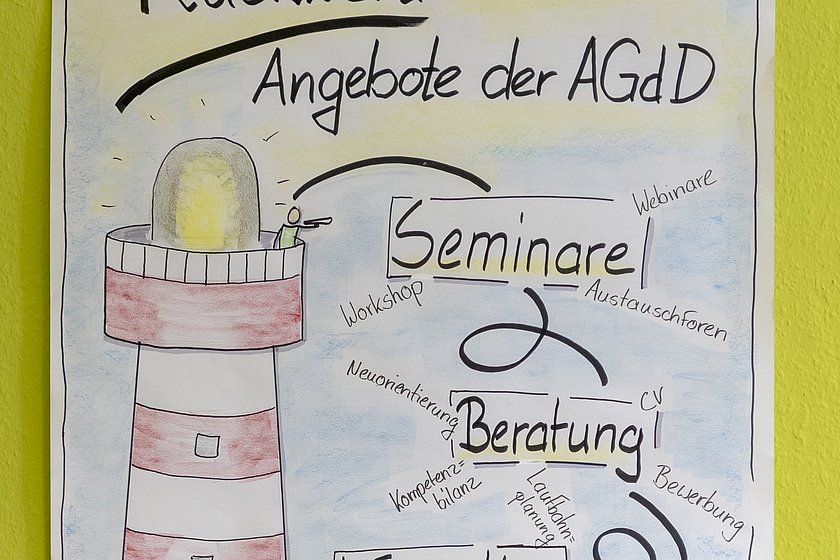 Angebote der AGdD
Webinare
Seminare
Workshop
Austauschforen
Neuorientierung
CV
Beratung
Kompetenz=
bilanz
Laufbahn=
planung
Bewerbung